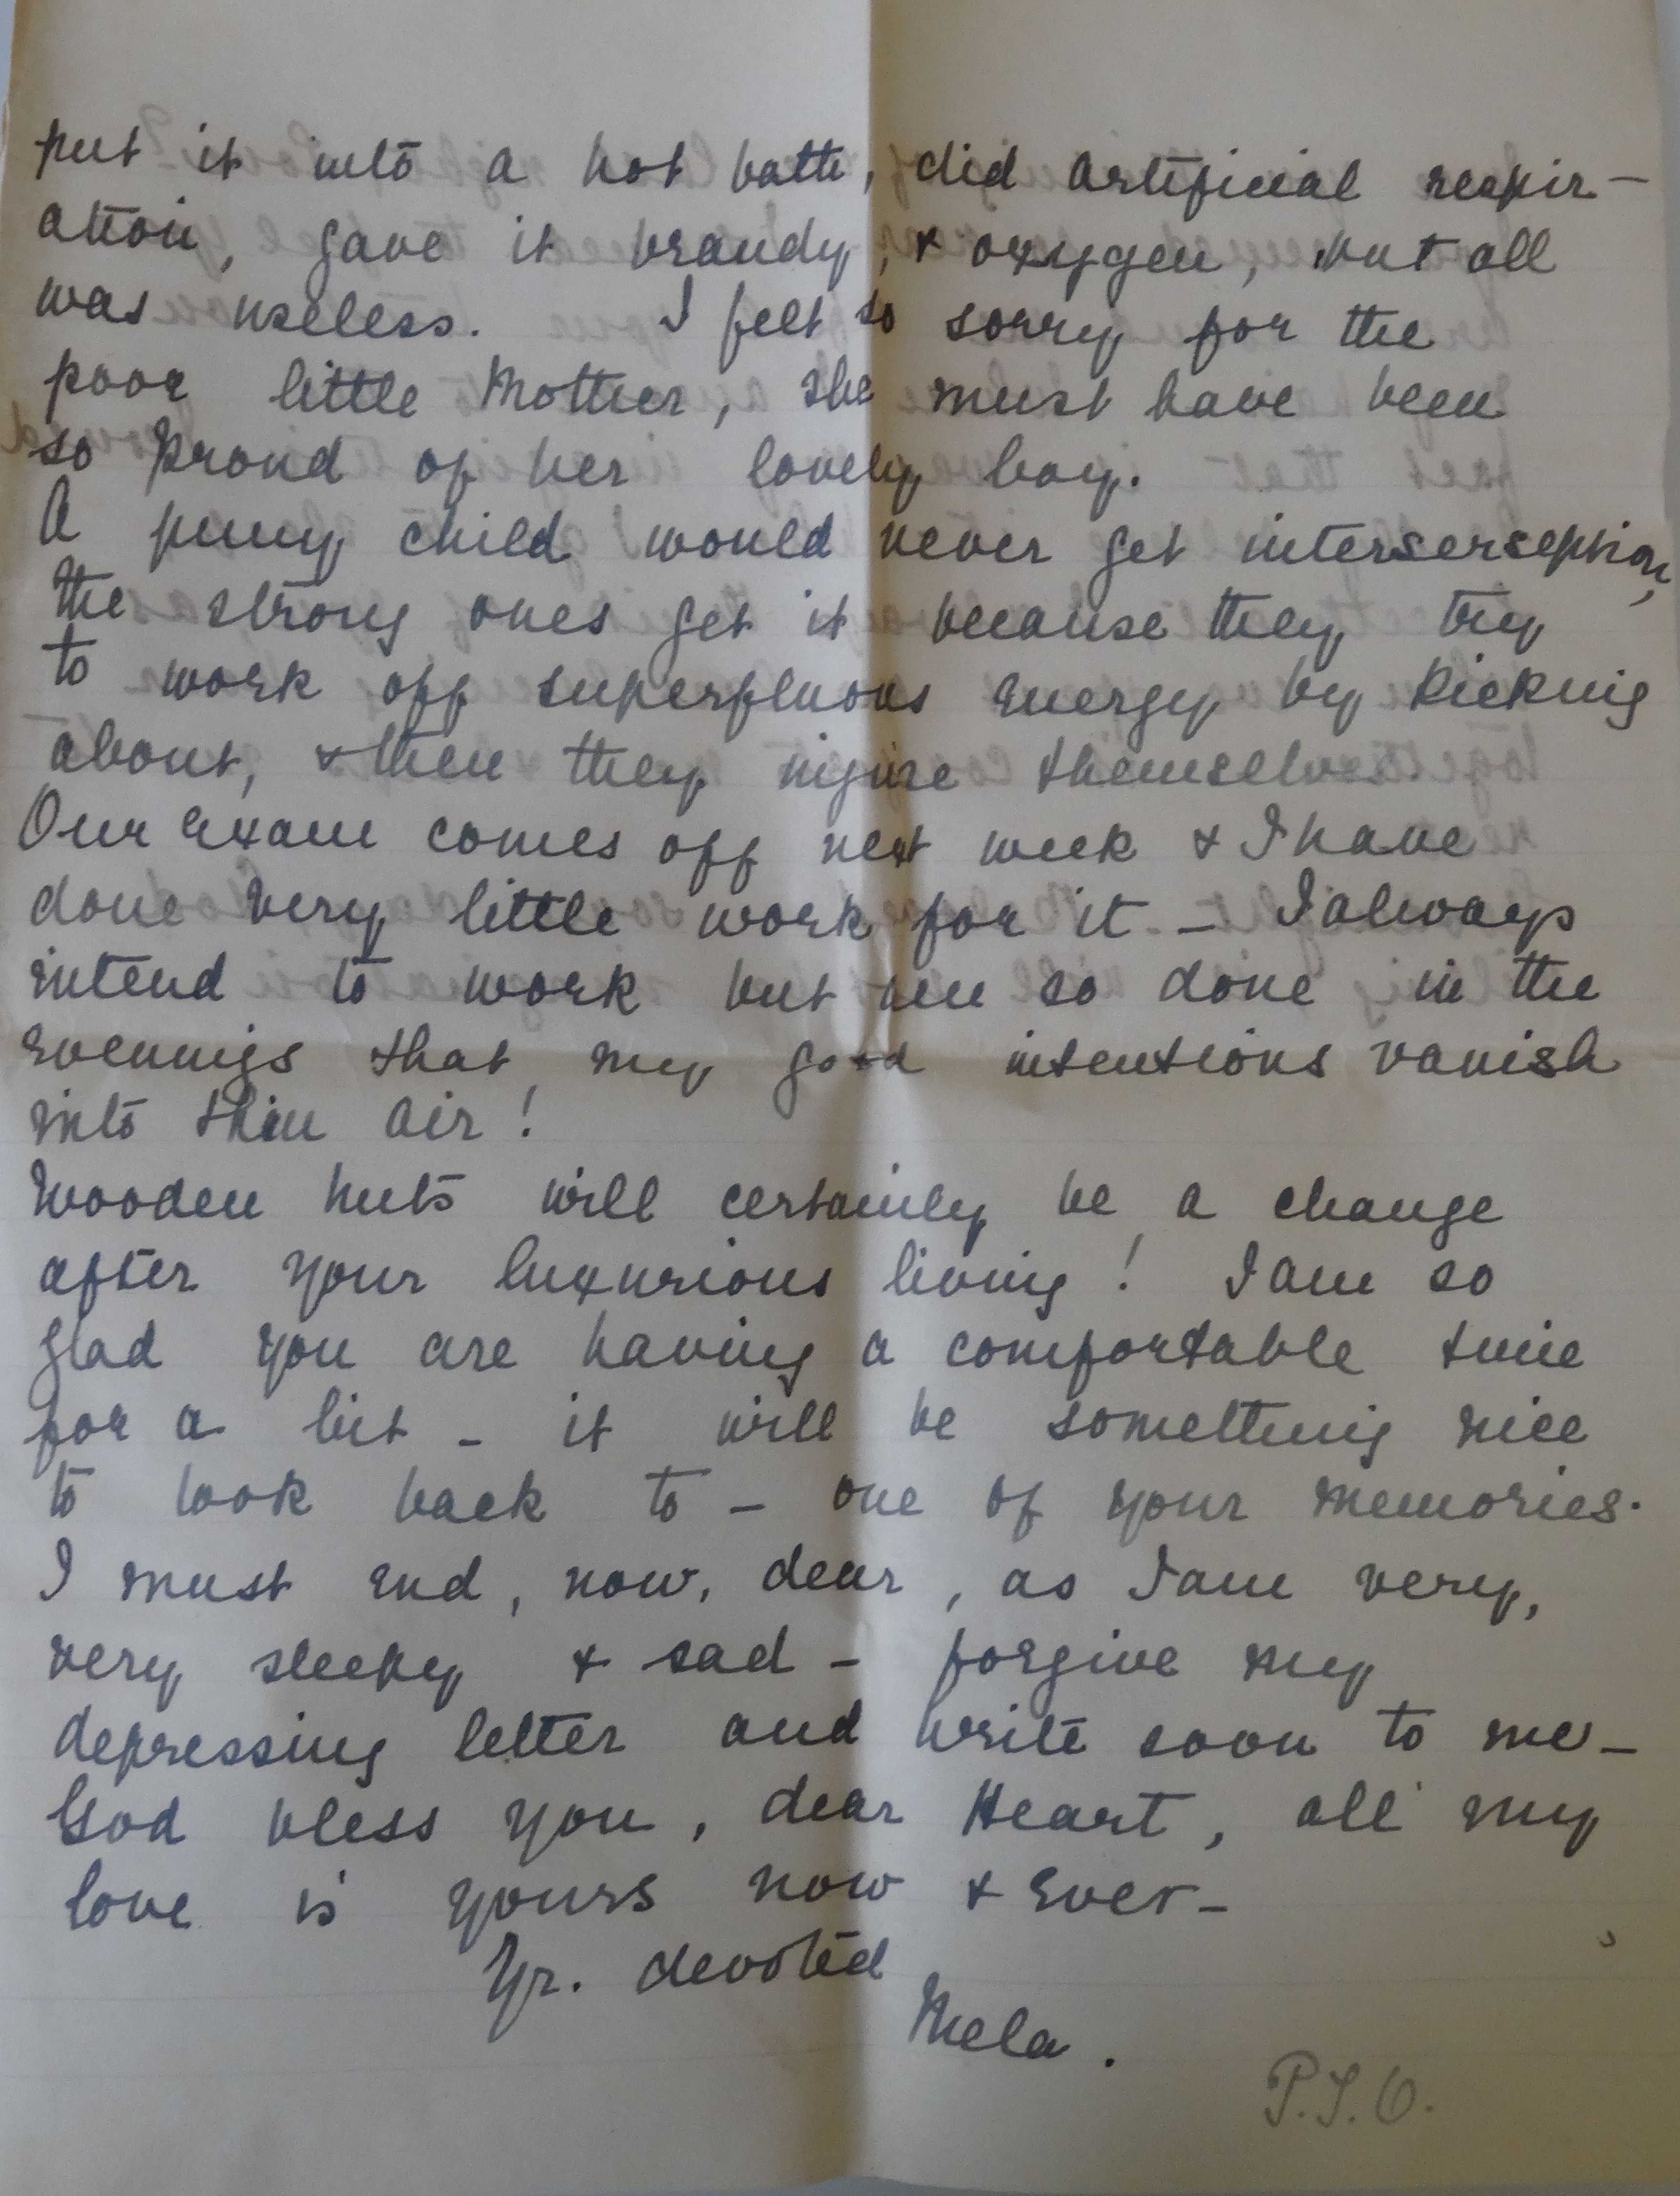 put it into a hot bath, did artificial respir-
ation, gave it brandy, & oxygen, but all
was useless. I felt so sorry for the
poor little Mother, she must have been
so proud of her lovely boy.
A puny child would never get interserseption,
the strong ones get it because they try
to work off superfluous energy by kicking
about, & then they injure themselves.
Our exam comes off next week & I have
done very little work for it - I always
intend to work but am so done in the
evenings that my good intentions vanish
into thin air!
Wooden huts will certainly be a change
after your luxurious living! I am so
glad you are having a comfortable time
for a bit - it will be something nice
to look back to - one of your memories.
I must end, now, dear, as I am very,
very sleepy & sad - forgive my
depressing letter and write soon to me -
God bless you, dear Heart, all my
love is yours now & ever -
Yr. devoted
Mela.
P.T.O.